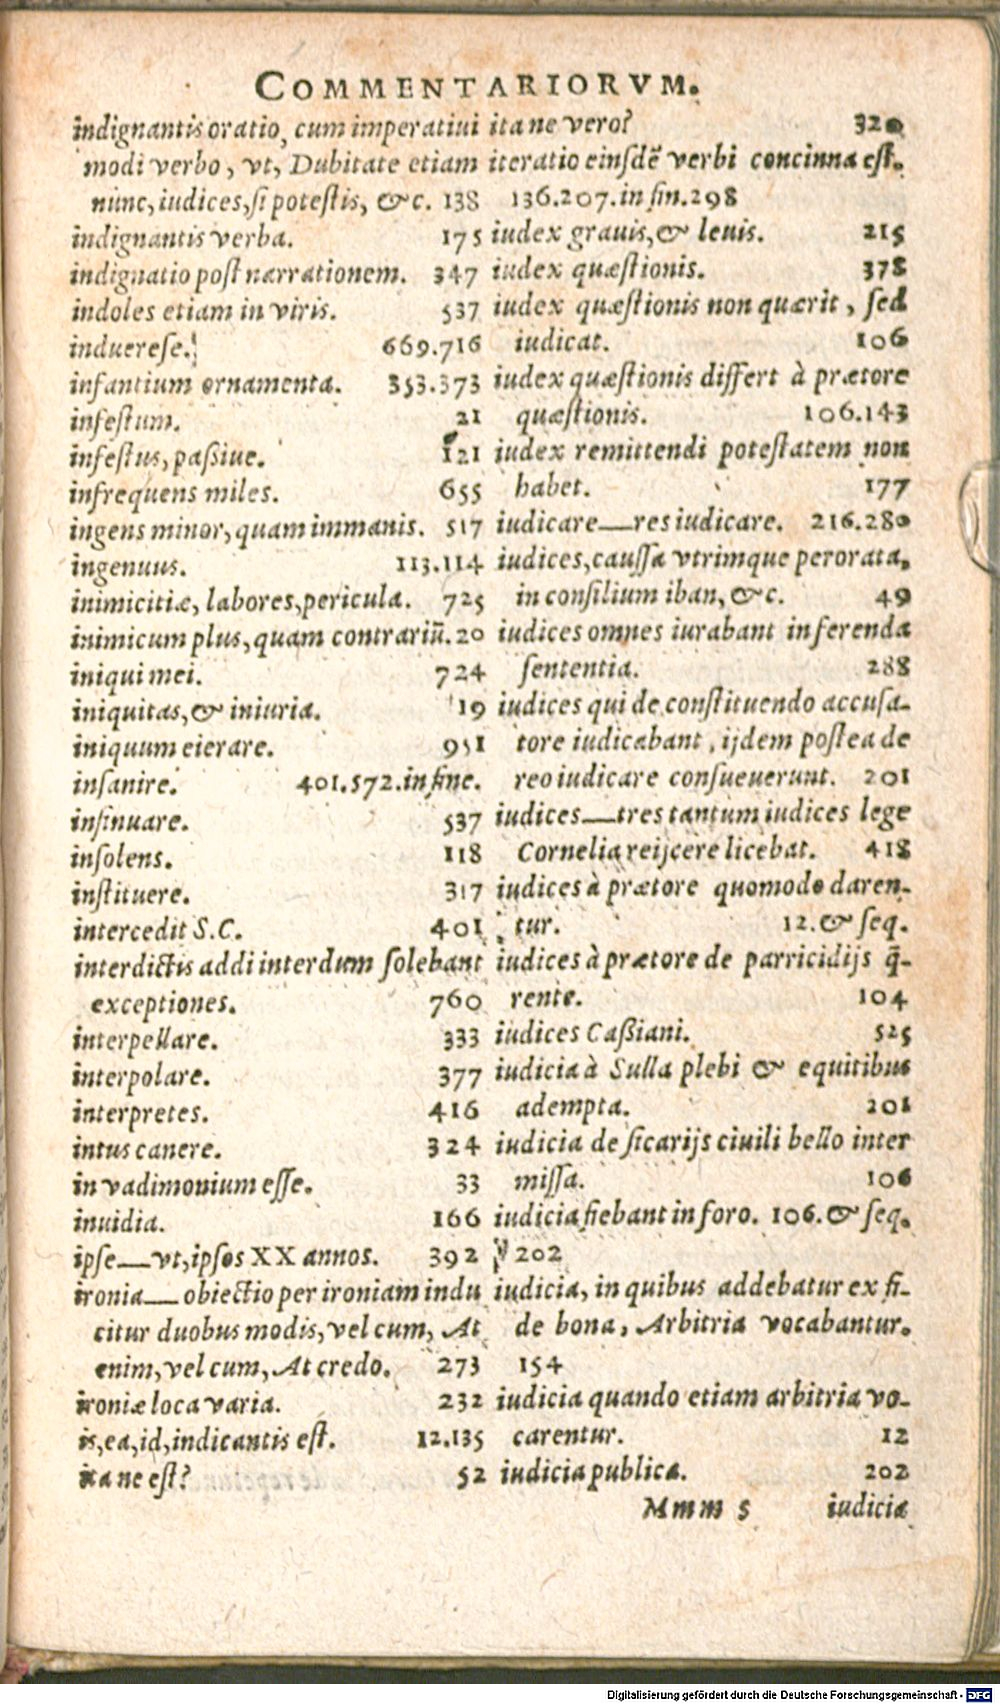 COMMENTARIORVM.
indignantis oratio, cum imperatiui
modi verbo, vt, Dubitate etiam
nunc, iudices, si potestis, &c. 138
indignantis verba. 175
indignatio post narrationem. 347
indoles etiam in viris. 537
induere se. 669.716
infantium ornamenta. 353.373
infestum. 21
infestus, passiue. 121
infrequens miles. 655
ingens minor, quam immanis. 517
ingenuus. 113.114
inimicitiæ, labores, pericula. 725
inimicum plus, quam contrariū. 20
iniqui mei. 724
iniquitas, & iniuria. 19
iniquum eierare. 951
insanire. 401.572.in fine.
insinuare. 537
insolens. 118
instituere. 317
intercedit S.C. 401
interdictis addi interdum solebant
exceptiones. 760
interpellare. 333
interpolare. 377
interpretes. 416
intus canere. 324
in vadimonium esse. 33
inuidia. 166
ipse—vt, ipsos XX annos. 392
ironia—obiectio per ironiam indu
citur duobus modis, vel cum, At
enim, vel cum, At credo. 273
ironiæ loca varia. 232
is, ea, id, indicantis est. 12.135
ita ne est? 52
ita ne vero? 320
iteratio eiusdē verbi concinna est.
136.207.in fin.298
iudex grauis, & leuis. 215
iudex quæstionis. 378
iudex quæstionis non quærit, sed
iudicat. 106
iudex quæstionis differt à prætore
quæstionis. 106.143
iudex remittendi potestatem non
habet. 177
iudicare—res iudicare. 216.280
iudices, caussa vtrimque perorata,
in consilium iban, &c. 49
iudices omnes iurabant in ferenda
sententia. 288
iudices qui de constituendo accusa-
tore iudicabant, ijdem postea de
reo iudicare consueuerunt. 201
iudices—tres tantum iudices lege
Cornelia reijcere licebat. 418
iudices à prætore quomodo daren-
tur. 12.& seq.
iudices à prætore de parricidijs q̄-
rente. 104
iudices Cassiani. 525
iudicia à Sulla plebi & equitibus
adempta. 201
iudicia de sicarijs ciuili bello inter
missa. 106
iudicia fiebant in foro. 106.& seq.
202
iudicia, in quibus addebatur ex fi-
de bona, Arbitria vocabantur.
154
iudicia quando etiam arbitria vo-
carentur. 12
iudicia publica. 202
Mmm 5 iudicia
Digitalisierung gefördert durch die Deutsche Forschungsgemeinschaft - DFG